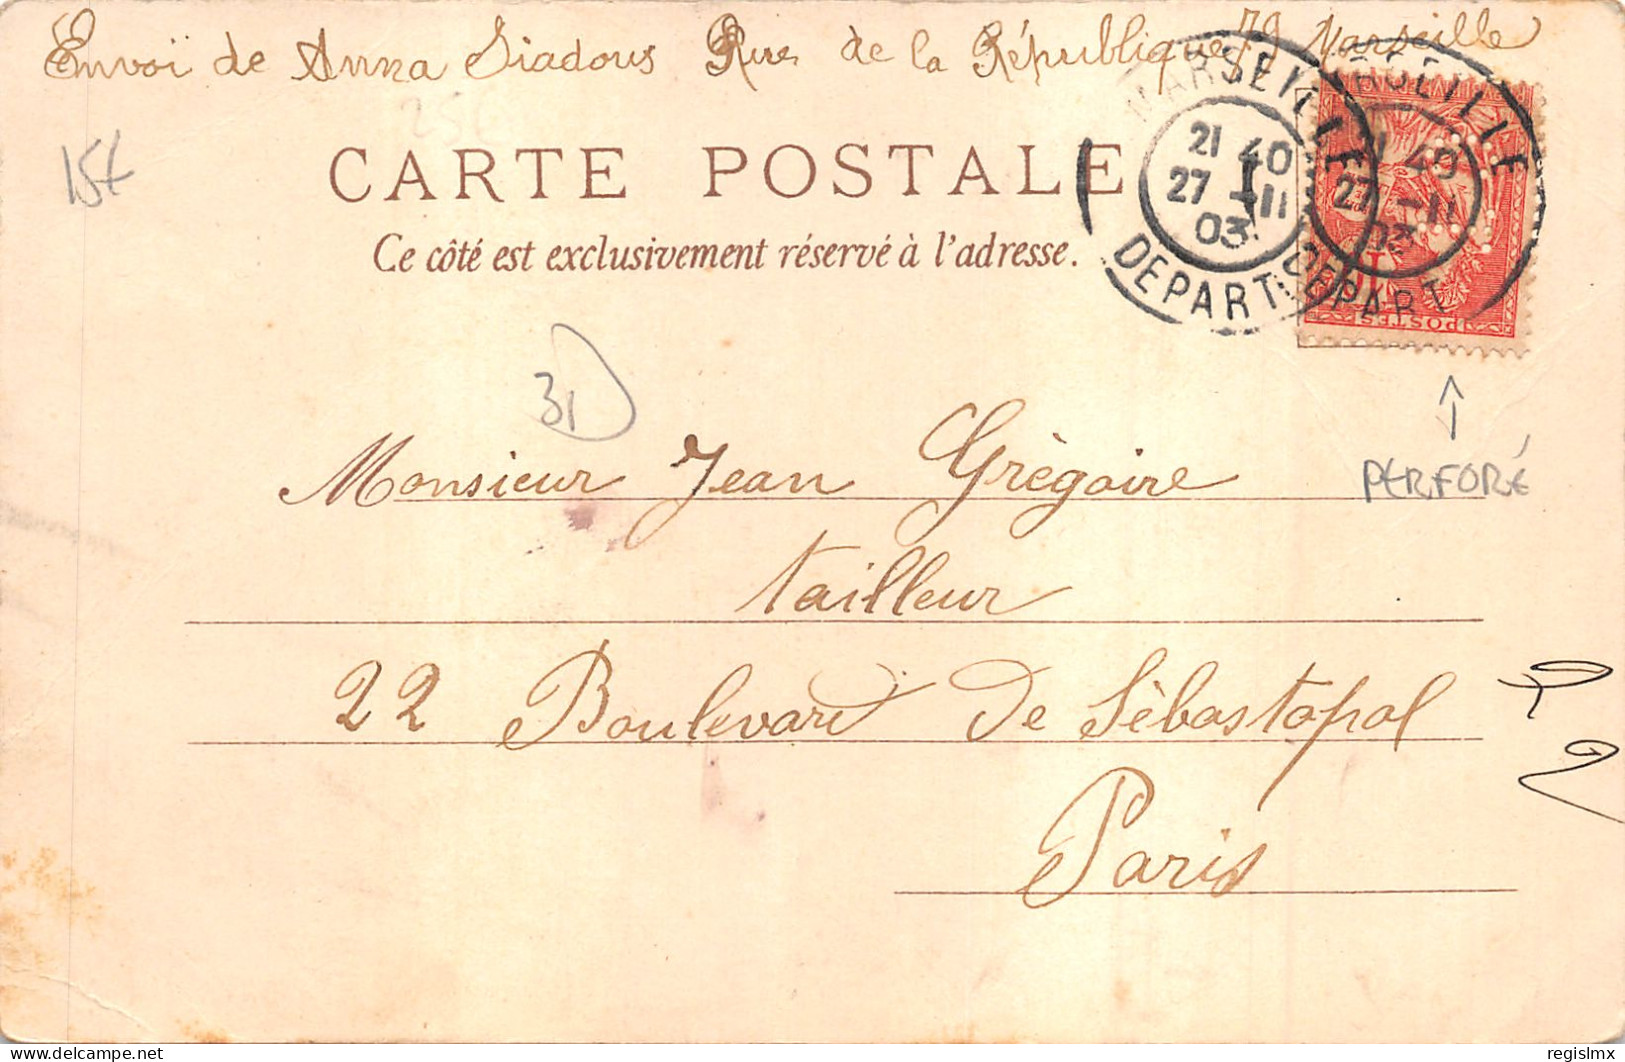 Envoï de Anna Siadous Rue de la République 79 Marseille
25€
15€
CARTE POSTALE
Ce côté est exclusivement réservé à l'adresse.
MARSEILLE
21 40
27 -11
03
DEPART
MARSEILLE
21 40
27 -11
03
DEPART
10
POSTES
31
PERFORÉ
Monsieur Jean Grègoire
tailleur
22 Boulevard De Sèbastopol
Paris
delcampe.net
regislmx